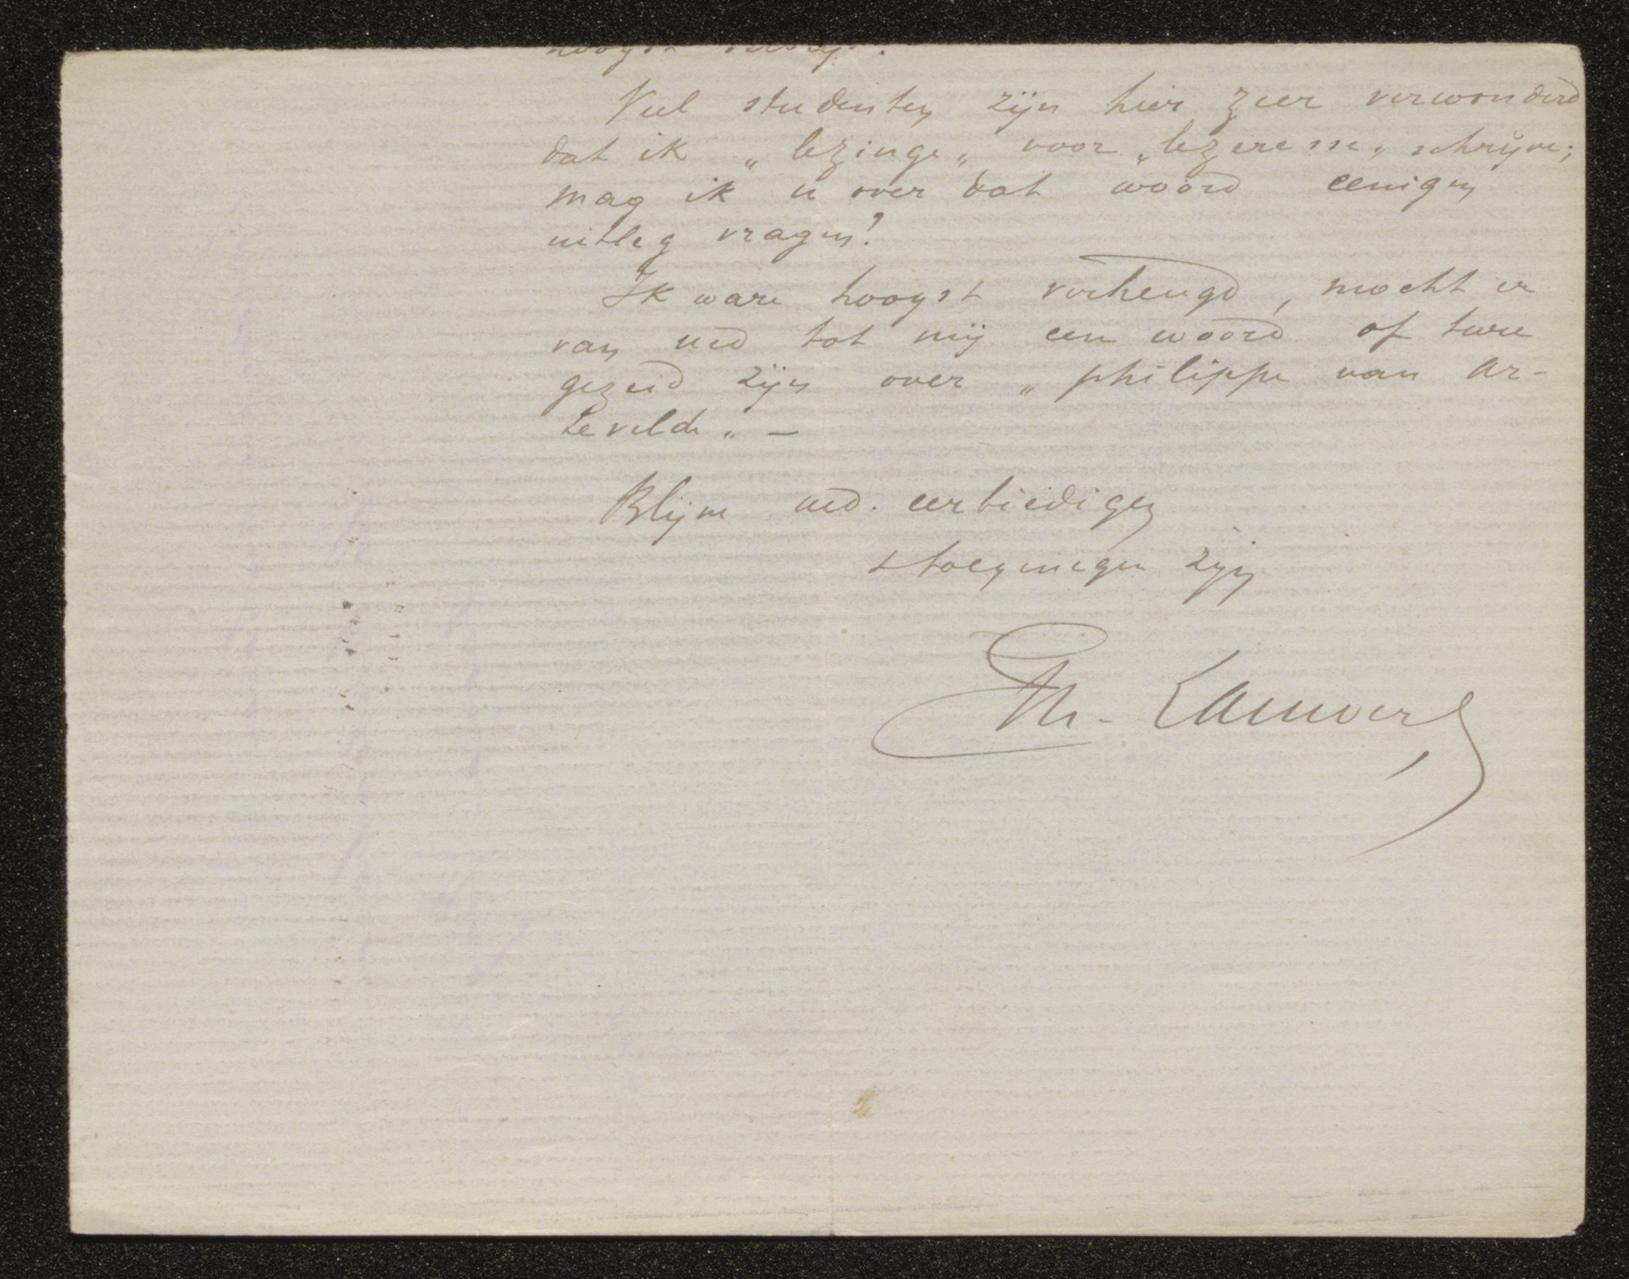 hoogst
Veel studenten zijn hier zeer verwonderd
dat ik „lezinge„ voor „lezeresse„ schrijve;
mag ik u over dat woord eenigen
uitleg vragen?
Ik ware hoogst verheugd, mocht er
van ued tot mij een woord of twee
gezeid zijn over „philippe van Ar-
tevelde„ —
Blijve ued. eerbiedigen
& toegenegen zijn
Th. Lauwers